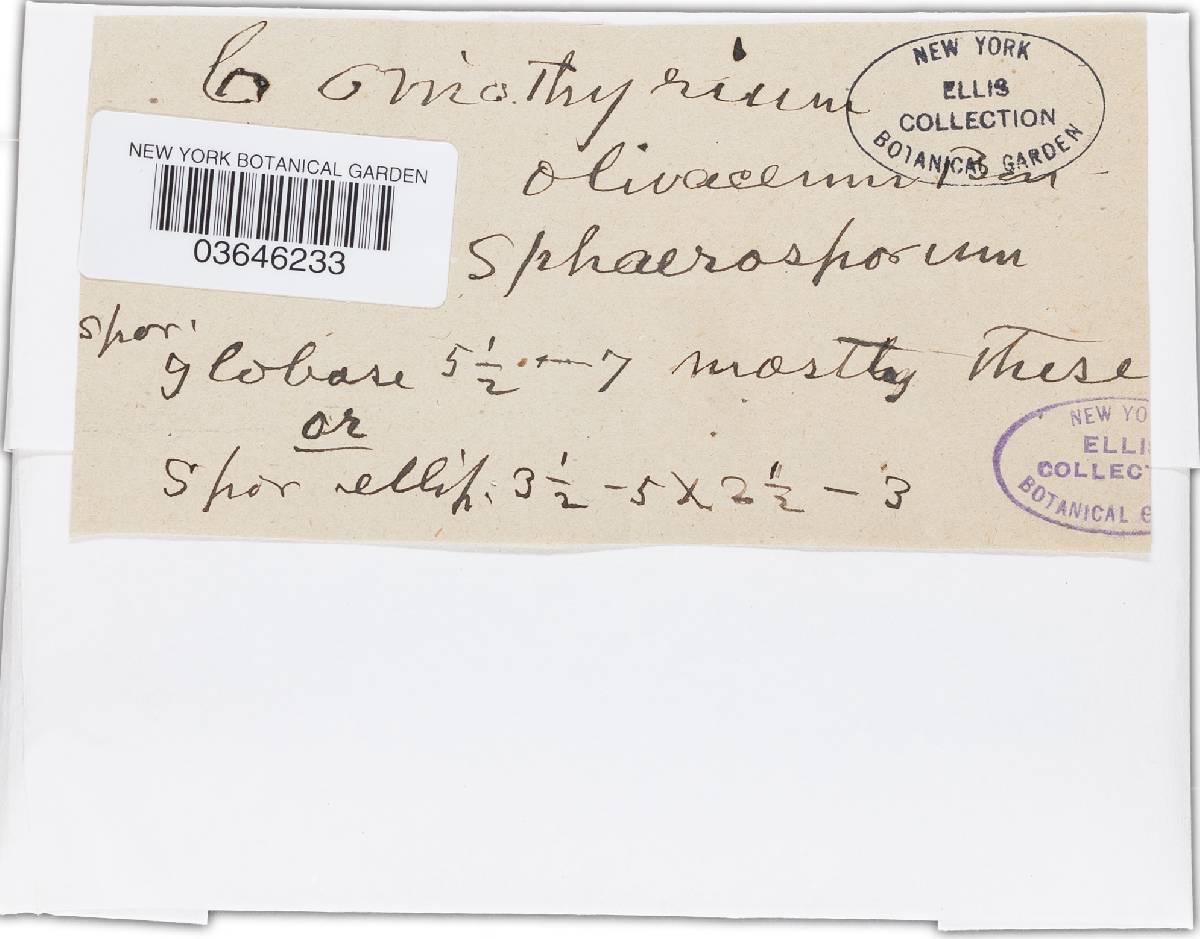 Coniothyrium
olivaceum Bon
sphaerosporum
spor.
globose 5 1/2 — 7 mostly these
or
Spor ellip. 3 1/2 - 5 X 2 1/2 - 3
NEW YORK
ELLIS
COLLECTION
BOTANICAL GARDEN
NEW YORK BOTANICAL GARDEN
03646233
NEW YO
ELLIS
COLLEC
BOTANICAL G